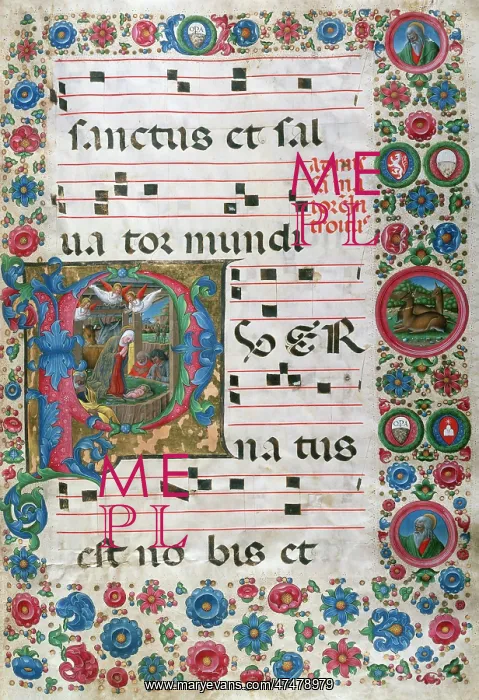 sanctus et sal
ua tor mundi
P VER
na tus
est no bis et
OPA
OPA
ME
PL
ME
PL
www.maryevans.com/47478979